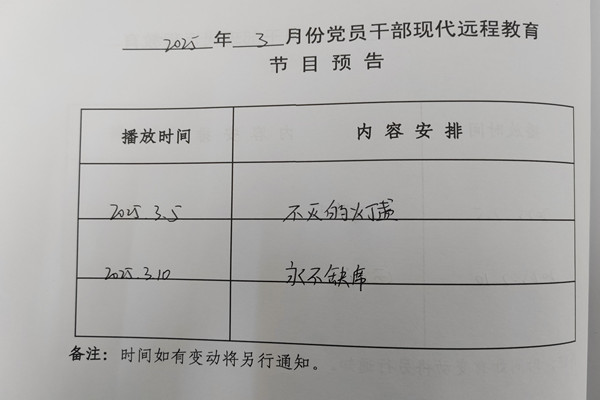 2025年3月份党员干部现代远程教育
节目预告
播放时间 内容安排
2025.3.5 不灭的灯盏
2025.3.10 永不缺席
备注：时间如有变动将另行通知。